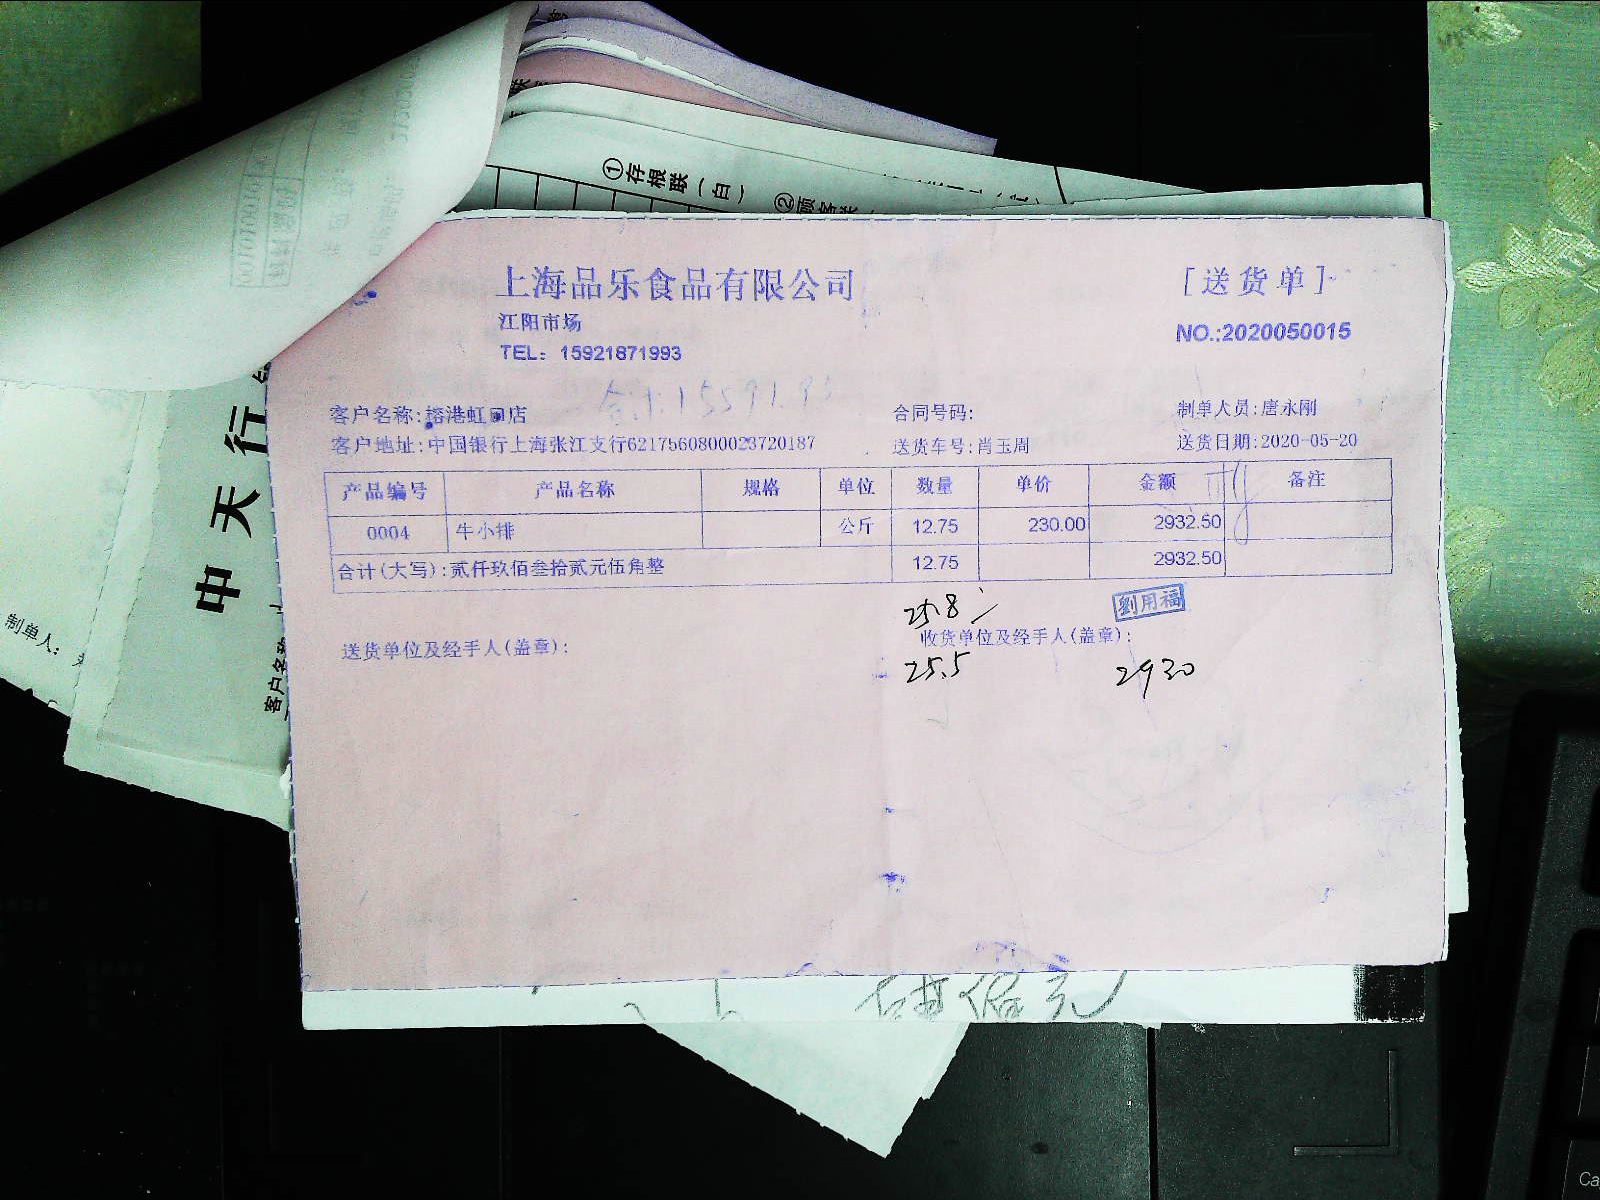 ①存根联（白）
②顾客联
上海品乐食品有限公司
[送货单]
江阳市场
NO.:2020050015
TEL: 15921871993
合计:15591.93
客户名称:榕港虹口店
合同号码:
制单人员:唐永刚
客户地址:中国银行上海张江支行6217560800023720187
送货车号:肖玉周
送货日期:2020-05-20
产品编号 产品名称 规格 单位 数量 单价 金额 备注
0004 牛小排 公斤 12.75 230.00 2932.50
合计(大写):贰仟玖佰叁拾贰元伍角整 12.75 2932.50
劉用福
送货单位及经手人(盖章):
收货单位及经手人(盖章):
25.5
2930
中天行
制单人:
客户名称